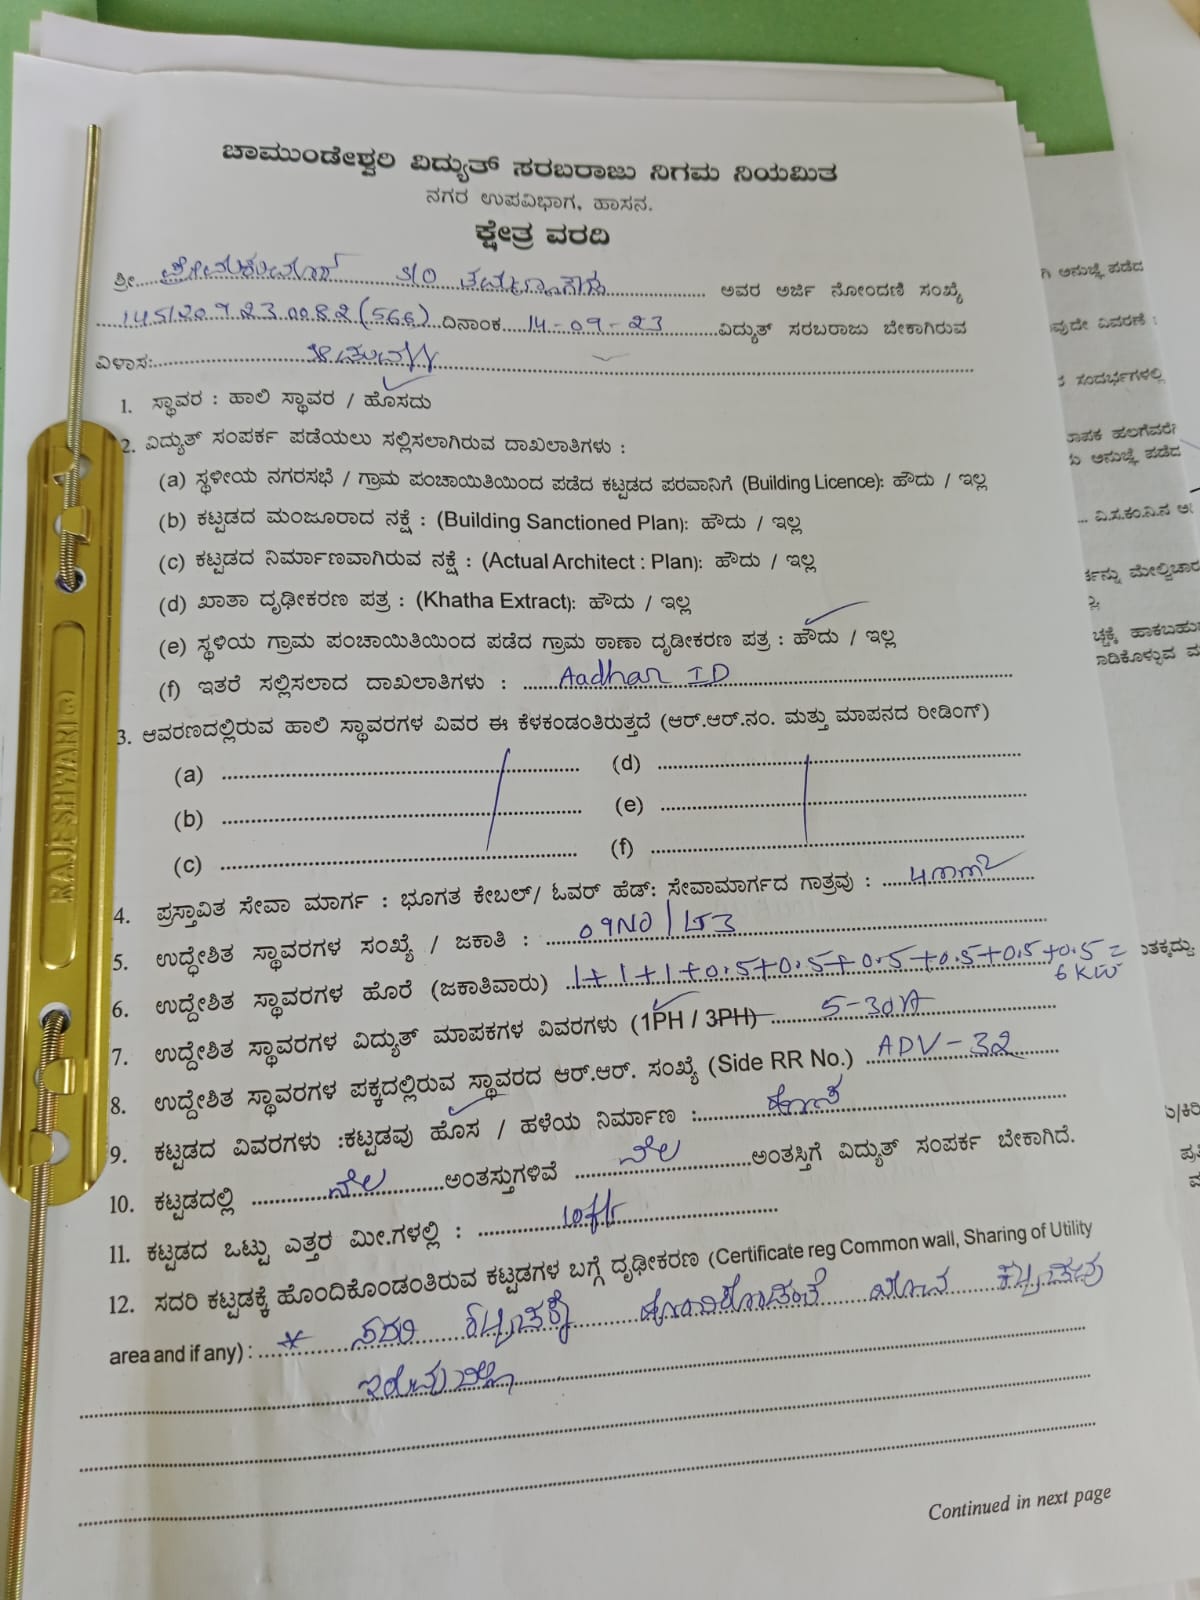 ಚಾಮುಂಡೇಶ್ವರಿ ವಿದ್ಯುತ್ ಸರಬರಾಜು ನಿಗಮ ನಿಯಮಿತ
ನಗರ ಉಪವಿಭಾಗ, ಹಾಸನ.
ಕ್ಷೇತ್ರ ವರದಿ
ಶ್ರೀ. ಪ್ರೇಮಕುಮಾರ್ S/O ಅವರ ಅರ್ಜಿ ನೋಂದಣಿ ಸಂಖ್ಯೆ
1451209230082 (566) ದಿನಾಂಕ 14-09-23 ವಿದ್ಯುತ್ ಸರಬರಾಜು ಬೇಕಾಗಿರುವ
ವಿಳಾಸ:
1. ಸ್ಥಾವರ : ಹಾಲಿ ಸ್ಥಾವರ / ಹೊಸದು
2. ವಿದ್ಯುತ್ ಸಂಪರ್ಕ ಪಡೆಯಲು ಸಲ್ಲಿಸಲಾಗಿರುವ ದಾಖಲಾತಿಗಳು :
(a) ಸ್ಥಳೀಯ ನಗರಸಭೆ / ಗ್ರಾಮ ಪಂಚಾಯಿತಿಯಿಂದ ಪಡೆದ ಕಟ್ಟಡದ ಪರವಾನಿಗೆ (Building Licence): ಹೌದು / ಇಲ್ಲ
(b) ಕಟ್ಟಡದ ಮಂಜೂರಾದ ನಕ್ಷೆ : (Building Sanctioned Plan): ಹೌದು / ಇಲ್ಲ
(c) ಕಟ್ಟಡದ ನಿರ್ಮಾಣವಾಗಿರುವ ನಕ್ಷೆ : (Actual Architect : Plan): ಹೌದು / ಇಲ್ಲ
(d) ಖಾತಾ ದೃಢೀಕರಣ ಪತ್ರ : (Khatha Extract): ಹೌದು / ಇಲ್ಲ
(e) ಸ್ಥಳಿಯ ಗ್ರಾಮ ಪಂಚಾಯಿತಿಯಿಂದ ಪಡೆದ ಗ್ರಾಮ ಠಾಣಾ ದೃಡೀಕರಣ ಪತ್ರ : ಹೌದು / ಇಲ್ಲ
(f) ಇತರೆ ಸಲ್ಲಿಸಲಾದ ದಾಖಲಾತಿಗಳು : Aadhar ID
3. ಆವರಣದಲ್ಲಿರುವ ಹಾಲಿ ಸ್ಥಾವರಗಳ ವಿವರ ಈ ಕೆಳಕಂಡಂತಿರುತ್ತದೆ (ಆರ್.ಆರ್.ನಂ. ಮತ್ತು ಮಾಪನದ ರೀಡಿಂಗ್)
(a) (d)
(b) (e)
(c) (f)
4. ಪ್ರಸ್ತಾವಿತ ಸೇವಾ ಮಾರ್ಗ : ಭೂಗತ ಕೇಬಲ್/ ಓವರ್ ಹೆಡ್: ಸೇವಾಮಾರ್ಗದ ಗಾತ್ರವು : 4mm²
5. ಉದ್ಧೇಶಿತ ಸ್ಥಾವರಗಳ ಸಂಖ್ಯೆ / ಜಕಾತಿ : 09NO / LT3
6. ಉದ್ದೇಶಿತ ಸ್ಥಾವರಗಳ ಹೊರೆ (ಜಕಾತಿವಾರು) 1+1+1+0.5+0.5+0.5+0.5+0.5+0.5=
6KW
7. ಉದ್ದೇಶಿತ ಸ್ಥಾವರಗಳ ವಿದ್ಯುತ್ ಮಾಪಕಗಳ ವಿವರಗಳು (1PH / 3PH) 5-30A
8. ಉದ್ದೇಶಿತ ಸ್ಥಾವರಗಳ ಪಕ್ಕದಲ್ಲಿರುವ ಸ್ಥಾವರದ ಆರ್.ಆರ್. ಸಂಖ್ಯೆ (Side RR No.) ADV-32
9. ಕಟ್ಟಡದ ವಿವರಗಳು :ಕಟ್ಟಡವು ಹೊಸ / ಹಳೆಯ ನಿರ್ಮಾಣ : ಹೊಸ
10. ಕಟ್ಟಡದಲ್ಲಿ ನೆಲ ಅಂತಸ್ತುಗಳಿವೆ ನೆಲ ಅಂತಸ್ತಿಗೆ ವಿದ್ಯುತ್ ಸಂಪರ್ಕ ಬೇಕಾಗಿದೆ.
11. ಕಟ್ಟಡದ ಒಟ್ಟು ಎತ್ತರ ಮೀ.ಗಳಲ್ಲಿ : 10ft
12. ಸದರಿ ಕಟ್ಟಡಕ್ಕೆ ಹೊಂದಿಕೊಂಡಂತಿರುವ ಕಟ್ಟಡಗಳ ಬಗ್ಗೆ ದೃಢೀಕರಣ (Certificate reg Common wall, Sharing of Utility
area and if any) : * ಸದರಿ ಕಟ್ಟಡಕ್ಕೆ ಹೊಂದಿಕೊಂಡಂತೆ ಯಾವ ಕಟ್ಟಡವು
ಇರುವುದಿಲ್ಲ
Continued in next page
RAJESHWARI